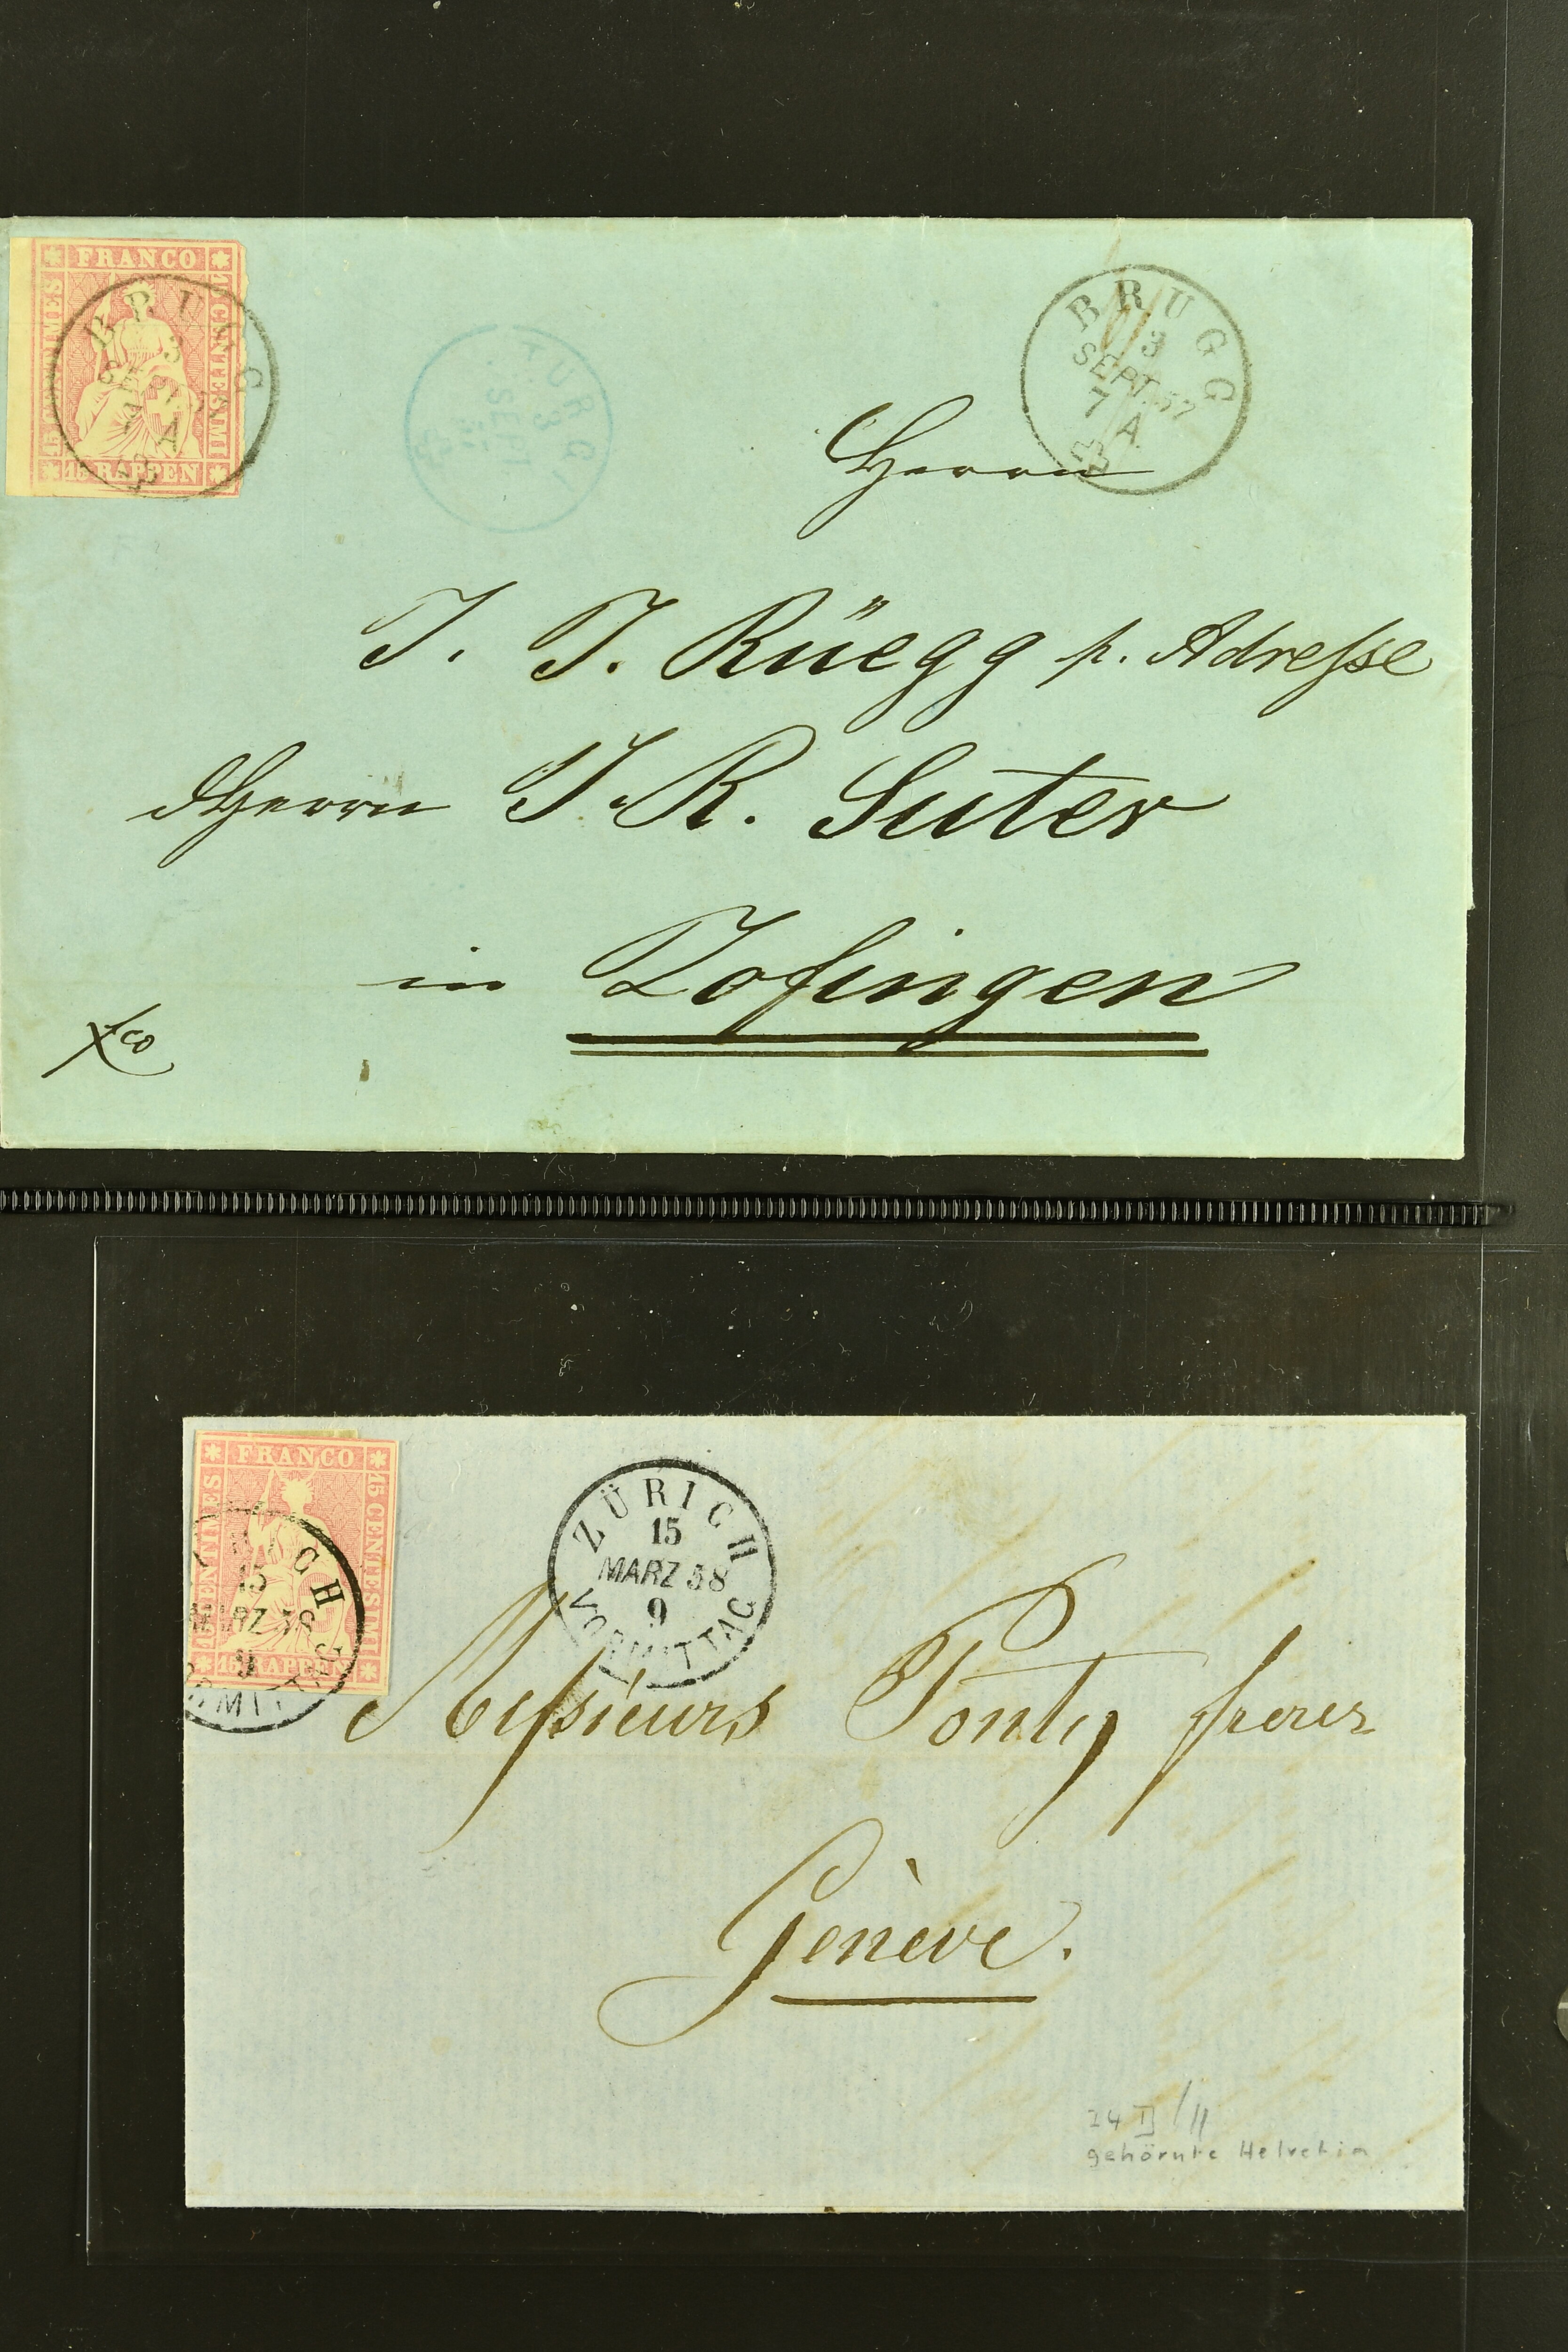 FRANCO
15 CENTESIMI
15 RAPPEN
BRUGG
3
SEPT. 57
7 A
TURGI
3
SEPT
BRUGG
3
SEPT. 57
7 A.
Herrn
J. J. Rüegg p. Adresse
Herrn J. R. Suter
in Zofingen
fco
FRANCO
15 CENTESIMI
15 RAPPEN
CENTIMES
15
MARZ 58
9
ZÜRICH
15
MARZ 58
9
VORMITTAG
Messieurs Ponty freres
Genève.
24 II
gehörnte Helvetia